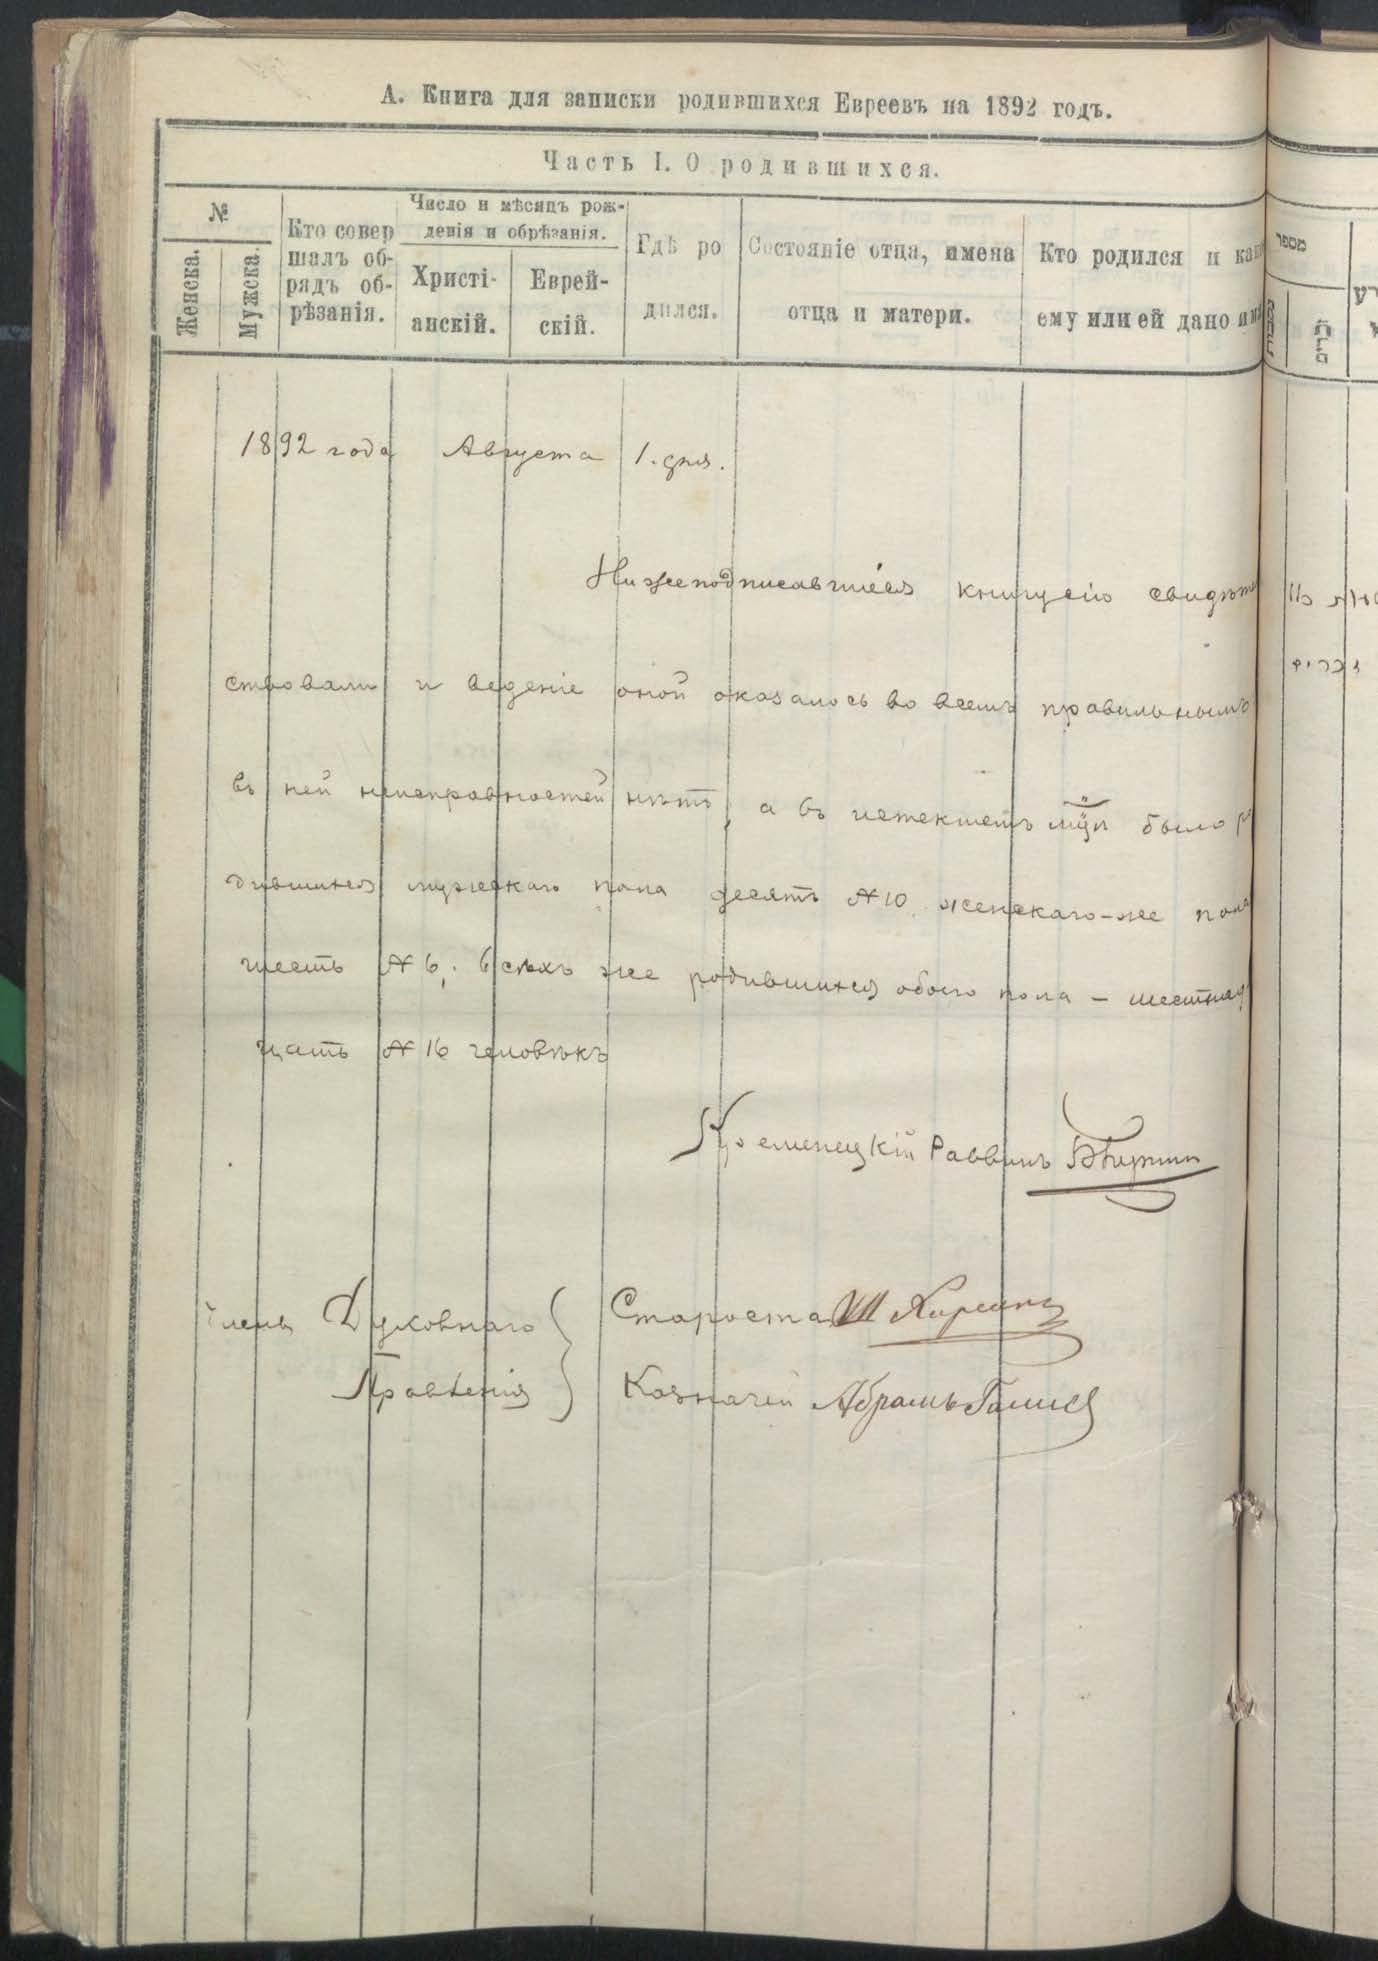 А. Книга для записки родившихся Евреевъ на 1892 годъ.
Часть I. О родившихся.
№
Женска.
Мужска.
Кто совер
шалъ об-
рядъ об-
рѣзанія.
Число и мѣсяцъ рож-
денія и обрѣзанія.
Христі-
анскій.
Еврей-
скій.
Гдѣ ро
дился.
Состояніе отца, имена
отца и матери.
Кто родился и как
ему или ей дано им
מספר
נקבות
זכרים
1892 года Августа 1. дня.
Нижеподписавшіеся книгу сію свидѣте
ствовали и веденіе оной оказалось во всемъ правильнымъ
въ ней неисправностей нѣтъ, а въ истекшемъ было ро
дившихся мужскаго пола десять № 10 женскаго-же пола
шесть № 6, всѣхъ же родившихся обоего пола – шестнад
цать № 16 человѣкъ
Кременецкій Раввинъ
Члены Духовнаго
Правленія
Староста Ш
Казначей Абрамъ